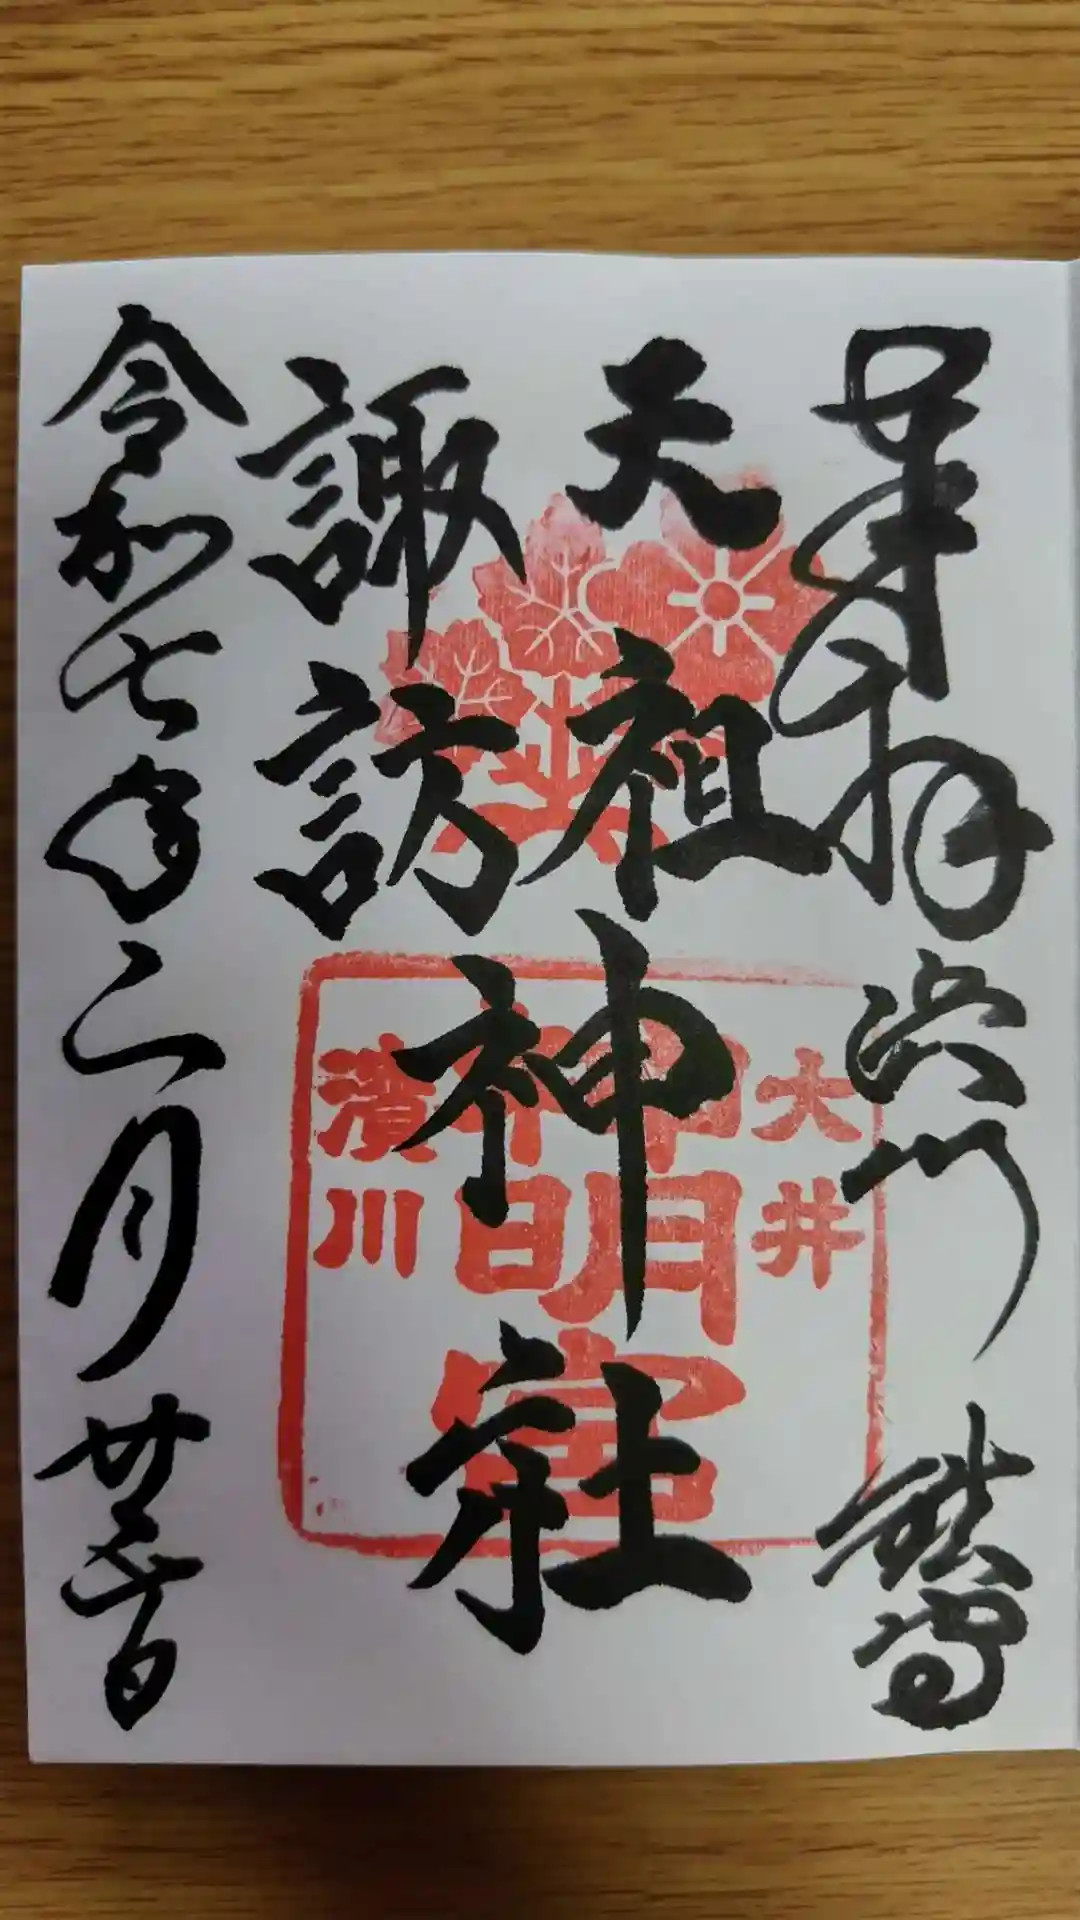 奉拝 浜川 鎮守
天祖
諏訪
神社
令和七年二月廿日
大井
神明宮
濱川